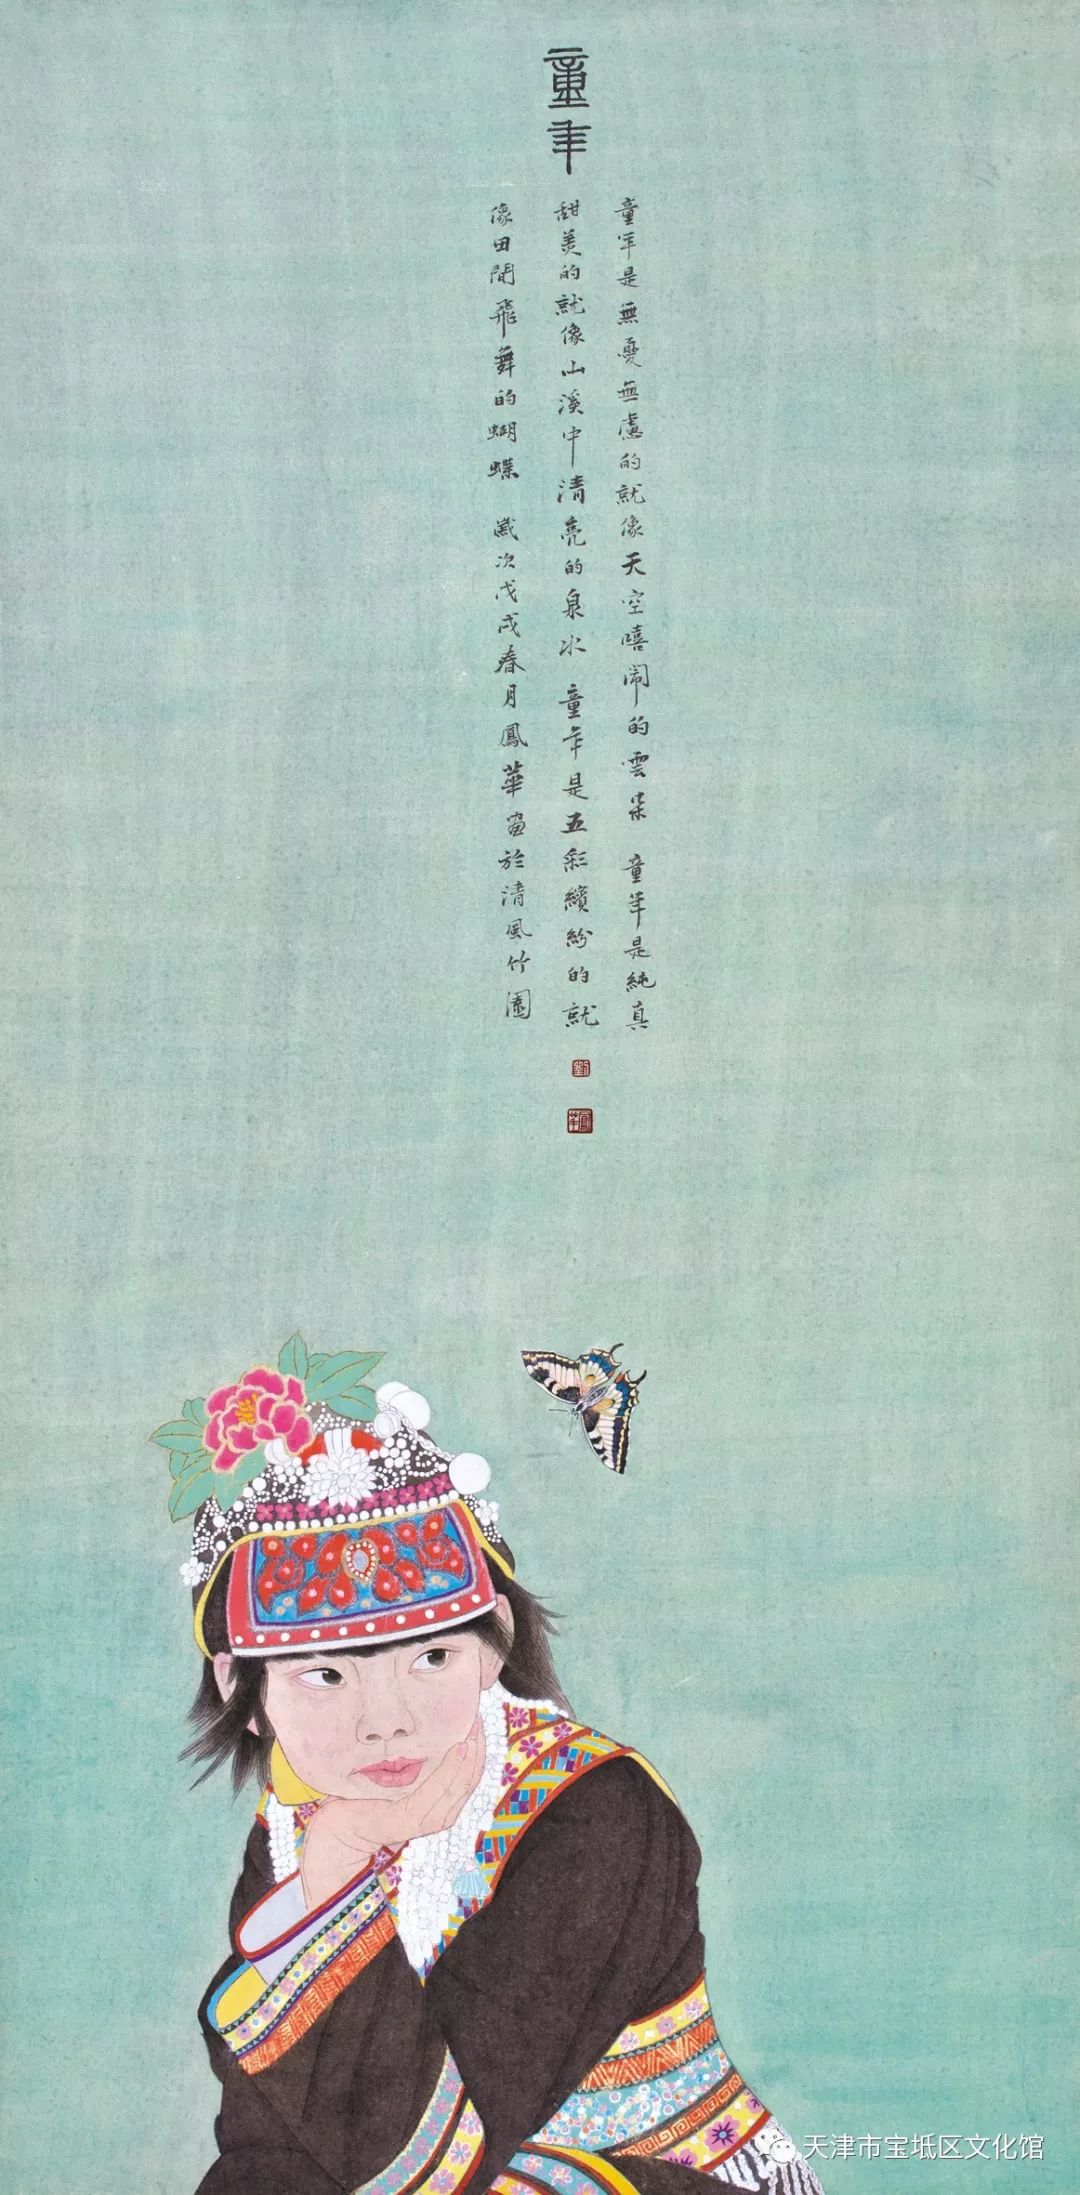 童年
童年是無憂無慮的就像天空嘻闹的雲朵 童年是純真
甜美的就像山溪中清亮的泉水 童年是五彩繽紛的就
像田間飛舞的蝴蝶 歲次戊戌春月鳳華畫於清風竹園
劉
鳳華
天津市宝坻区文化馆